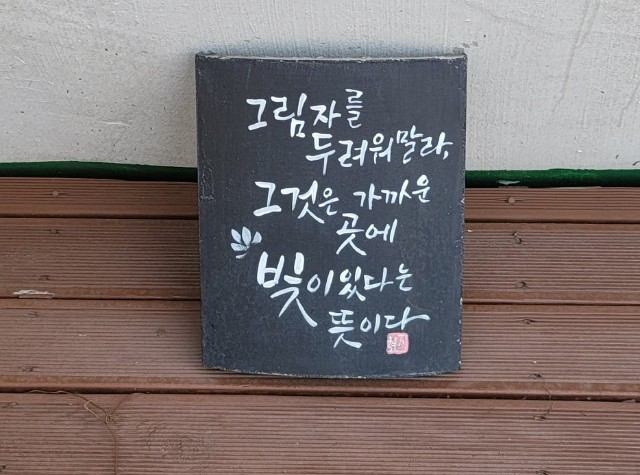 그림자를
두려워말라,
그것은 가까운
곳에
빛이 있다는
뜻이다